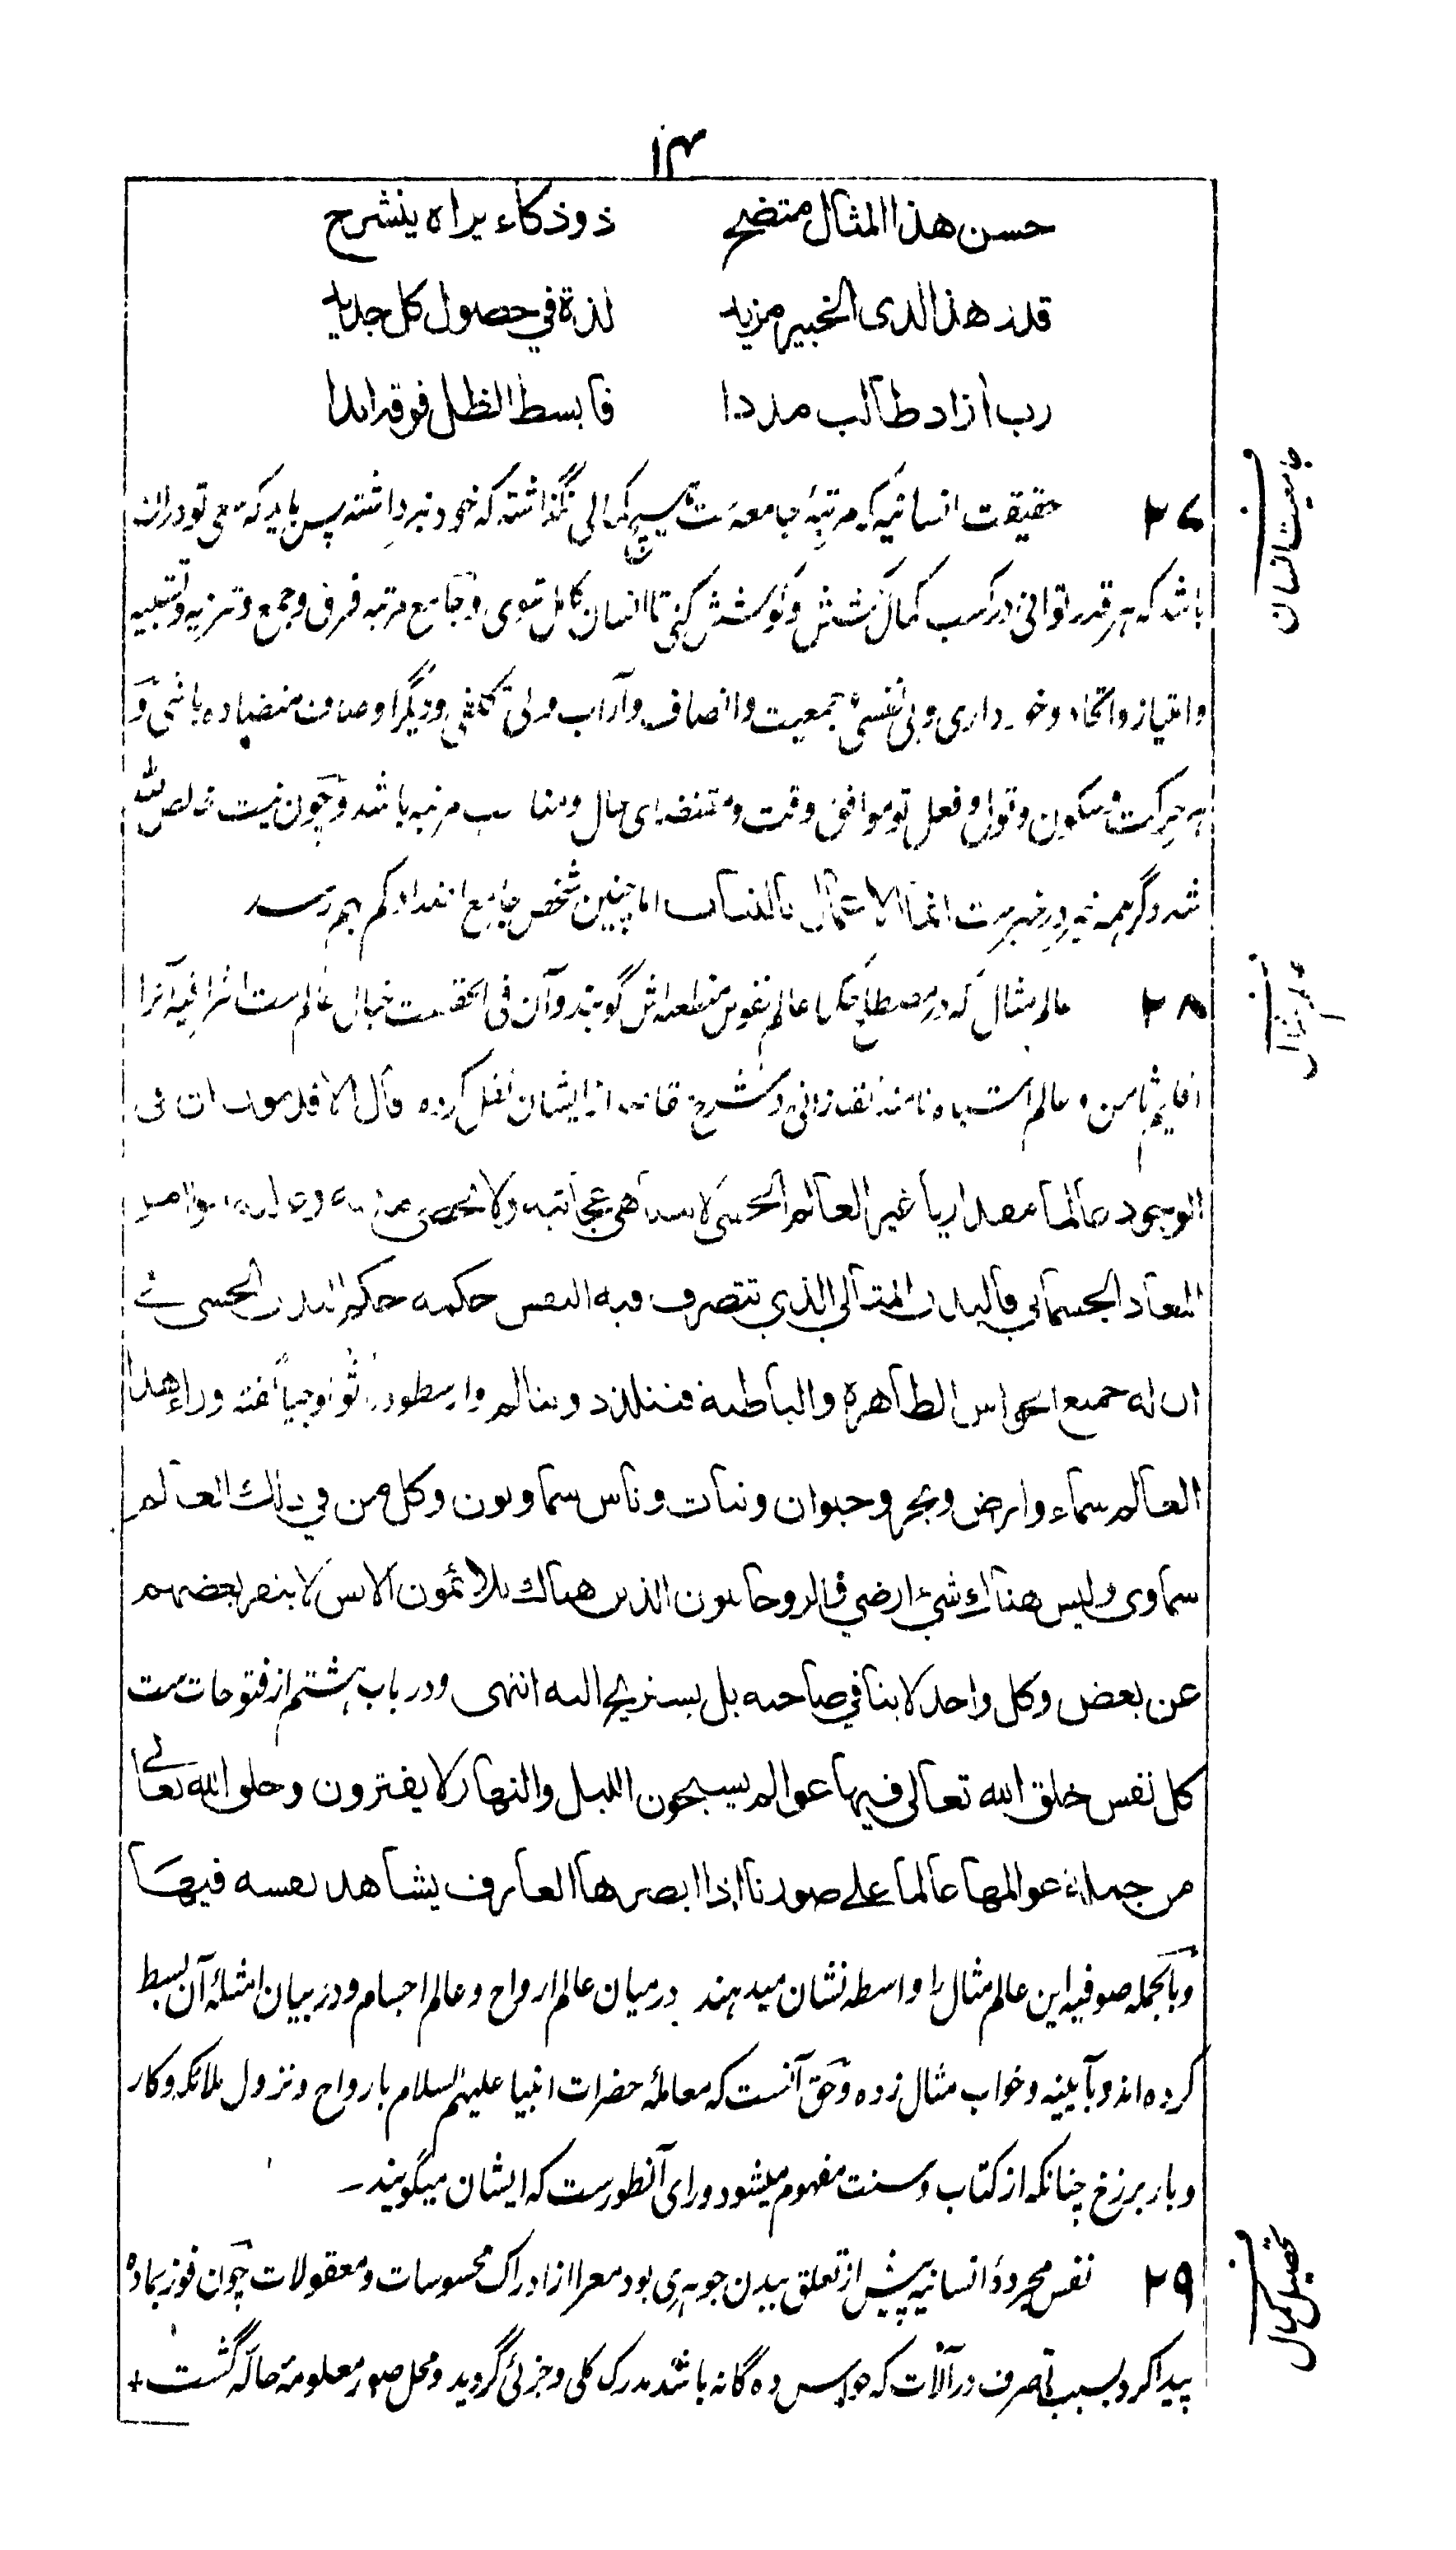 ۱۴
حسن هذا المثال متضح ذو ذكاء يراه ينشرح
قدر هذا لدى الخبير مزيد لذة في حصول كل جديد
رب ازاد طالب مددا فابسط الظل فوقه ابدا
۲۷ حقیقت انسانیه که مرتبهٔ جامعه‌ست هیچ کمالی نگذاشته که خود نبرداشته پس باید که سعی تو دران
جامعیت انسان
باشد که هر قدر توانی در کسب کمال کشش و کوشش کنی تا انسان کامل شوی و جامع مرتبه فرق و جمع و تنزیه و تشبیه
و امتیاز و اتحاد و خودداری و بی نفسی و جمعیت و انصاف و آداب و بی تکلفی و دیگر اوصاف متضاده باشی و
هر حرکت و سکون و قول و فعل تو موافق وقت و مقتضای حال و مناسب مرتبه باشد و چون نیت خالص لله
شد دگر همه خیر در خیرست انما الاعمال بالنیات اما چنین شخص جامع اضداد کم بهم رسد
۲۸ عالم مثال که در مصطلح حکما عالم نفوس منطبعه‌اش گویند و آن فی الحقیقت خیال عالم ست اشراقیه آنرا
عالم مثال
اقلیم ثامن و عالم اشباه نامند تفتازانی در شرح مقاصد از ایشان نقل کرده قال الاقدمون ان فی
الوجود عالما مقداریا غیر العالم الحسی لا یتناهی عجائبه ولا تحصی مدنه
المعاد الجسمانی فالبدن المثالی الذی تتصرف فیه النفس حکمه حکم البدن الحسی فی
ان له جمیع الحواس الظاهرة والباطنة فتتلذذ وتتالم وارسطو در اثولوجیا گفته وراء هذا
العالم سماء وارض وبحر وحیوان ونبات وناس سماویون وکل من فی ذلك العالم
سماوی ولیس هناك شیٔ ارضی فالروحانیون الذین هناك یلائمون الانس لا ینفر بعضهم
عن بعض وکل واحد لا ینافی صاحبه بل یستریح الیه انتهی و در باب هشتم از فتوحات ست
کل نفس خلق الله تعالی فیها عوالم یسبحون اللیل والنهار لا یفترون وخلق الله تعالی
من جملة عوالمها عالما علی صورنا اذا ابصرها العارف یشاهد نفسه فیها
و بالجمله صوفیه این عالم مثال را واسطه نشان میدهند درمیان عالم ارواح و عالم اجسام و در بیان امثلهٔ آن بسط
کرده‌اند و بآیینه و خواب مثال زده و حق آنست که معاملهٔ حضرات انبیا علیهم السلام بارواح و نزول ملائکه و کار
و بار برزخ چنانکه از کتاب و سنت مفهوم میشود ورای آنطورست که ایشان میگویند ـ
۲۹ نفس مجردهٔ انسانیه پیش از تعلق ببدن جوهری بود معرا از ادراک محسوسات و معقولات چون فوز بماده
تحصیل کمال
پیدا کرد بسبب تصرف در آلات که حواس ده گانه باشد مدرک کلی و جزئی گردید و محل صور معلومهٔ حالّه گشت +